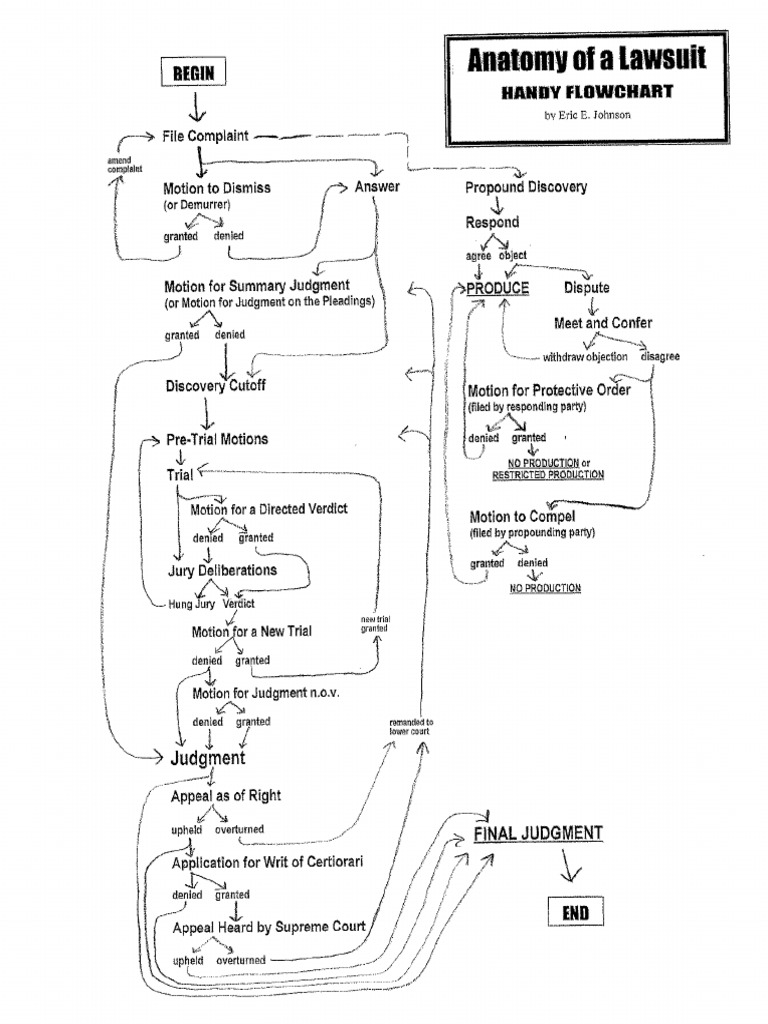 Anatomy of a Lawsuit
HANDY FLOWCHART
by Eric E. Johnson
BEGIN
File Complaint
amend
complaint
Motion to Dismiss
(or Demurrer)
granted denied
Answer
Motion for Summary Judgment
(or Motion for Judgment on the Pleadings)
granted denied
Discovery Cutoff
Pre-Trial Motions
Trial
Motion for a Directed Verdict
denied granted
Jury Deliberations
Hung Jury Verdict
Motion for a New Trial
denied granted
new trial
granted
Motion for Judgment n.o.v.
denied granted
Judgment
Appeal as of Right
upheld overturned
Application for Writ of Certiorari
denied granted
Appeal Heard by Supreme Court
upheld overturned
remanded to
lower court
Propound Discovery
Respond
agree object
PRODUCE
Dispute
Meet and Confer
withdraw objection disagree
Motion for Protective Order
(filed by responding party)
denied granted
NO PRODUCTION or
RESTRICTED PRODUCTION
Motion to Compel
(filed by propounding party)
granted denied
NO PRODUCTION
FINAL JUDGMENT
END